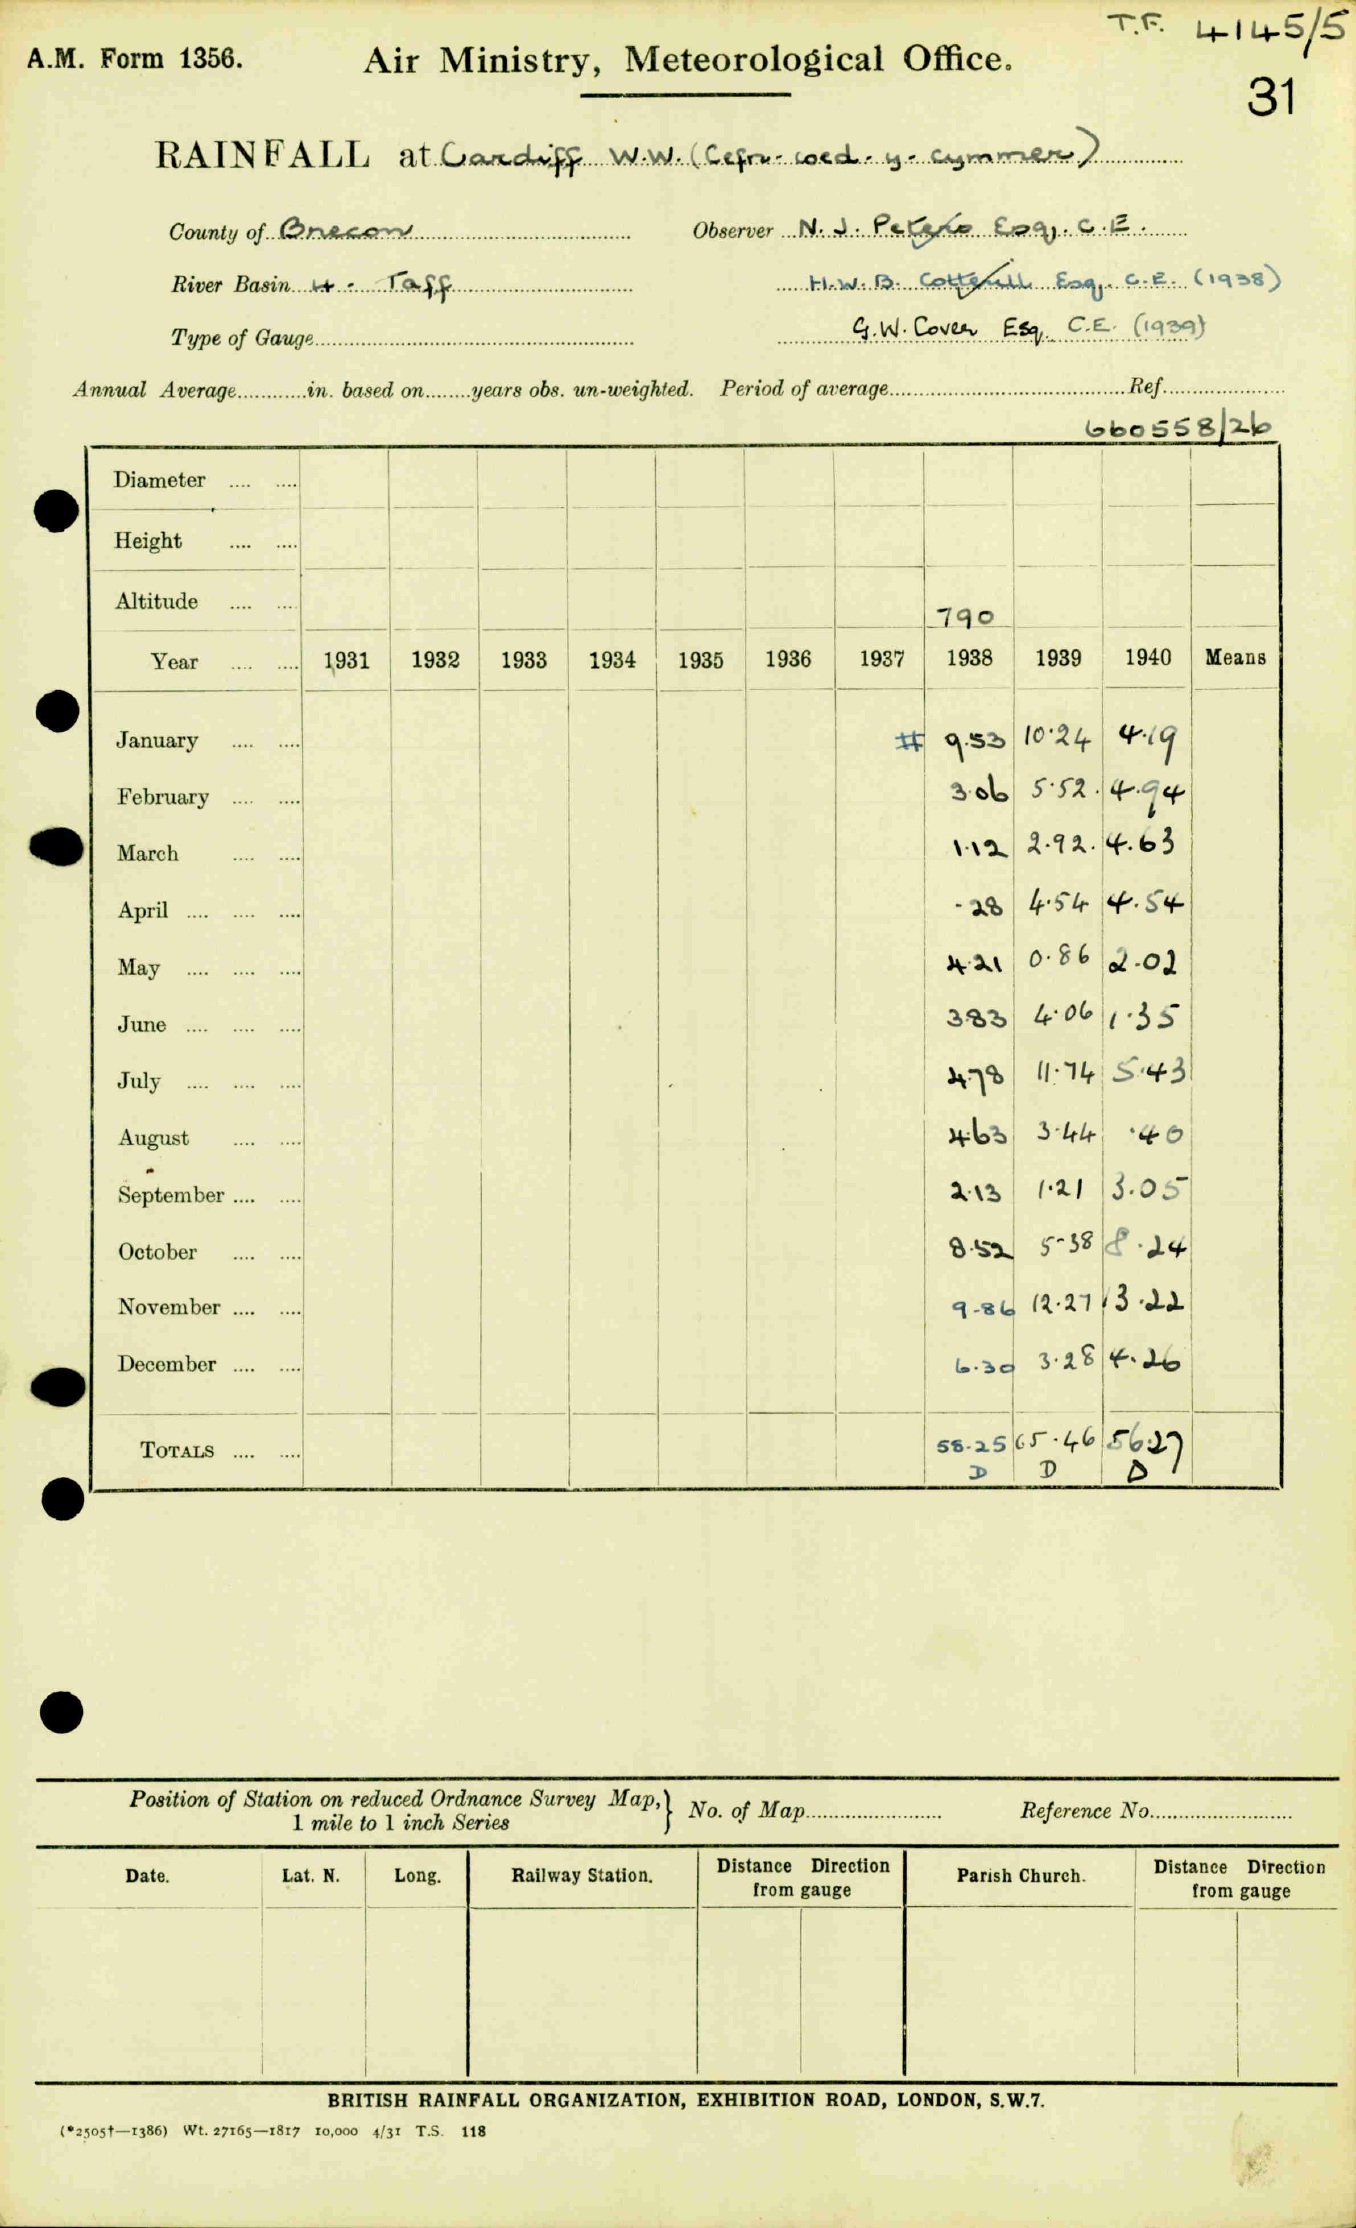 T.F. 4145/5
A.M. Form 1356. Air Ministry, Meteorological Office.
31
RAINFALL at Cardiff W.W. (Cefn-coed-y-cymmer)
County of Brecon Observer N. J. Peters Esq. C.E.
River Basin 4. Taff H.W.B. Cotterill Esq. C.E. (1938)
Type of Gauge G.W. Cover Esq. C.E. (1939)
Annual Average in. based on years obs. un-weighted. Period of average Ref.
660558/26
Diameter
Height
Altitude 790
Year 1931 1932 1933 1934 1935 1936 1937 1938 1939 1940 Means
January # 9.53 10.24 4.19
February 3.06 5.52. 4.94
March 1.12 2.92. 4.63
April .28 4.54 4.54
May 4.21 0.86 2.02
June 3.83 4.06 1.35
July 4.78 11.74 5.43
August 4.63 3.44 .40
September 2.13 1.21 3.05
October 8.52 5.38 8.24
November 9.86 12.27 13.22
December 6.30 3.28 4.26
TOTALS 58.25 65.46 56.27
D D D
Position of Station on reduced Ordnance Survey Map, } No. of Map Reference No.
1 mile to 1 inch Series
Date. Lat. N. Long. Railway Station. Distance Direction from gauge Parish Church. Distance Direction from gauge
BRITISH RAINFALL ORGANIZATION, EXHIBITION ROAD, LONDON, S.W.7.
(*2505†—1386) Wt. 27165—1817 10,000 4/31 T.S. 118